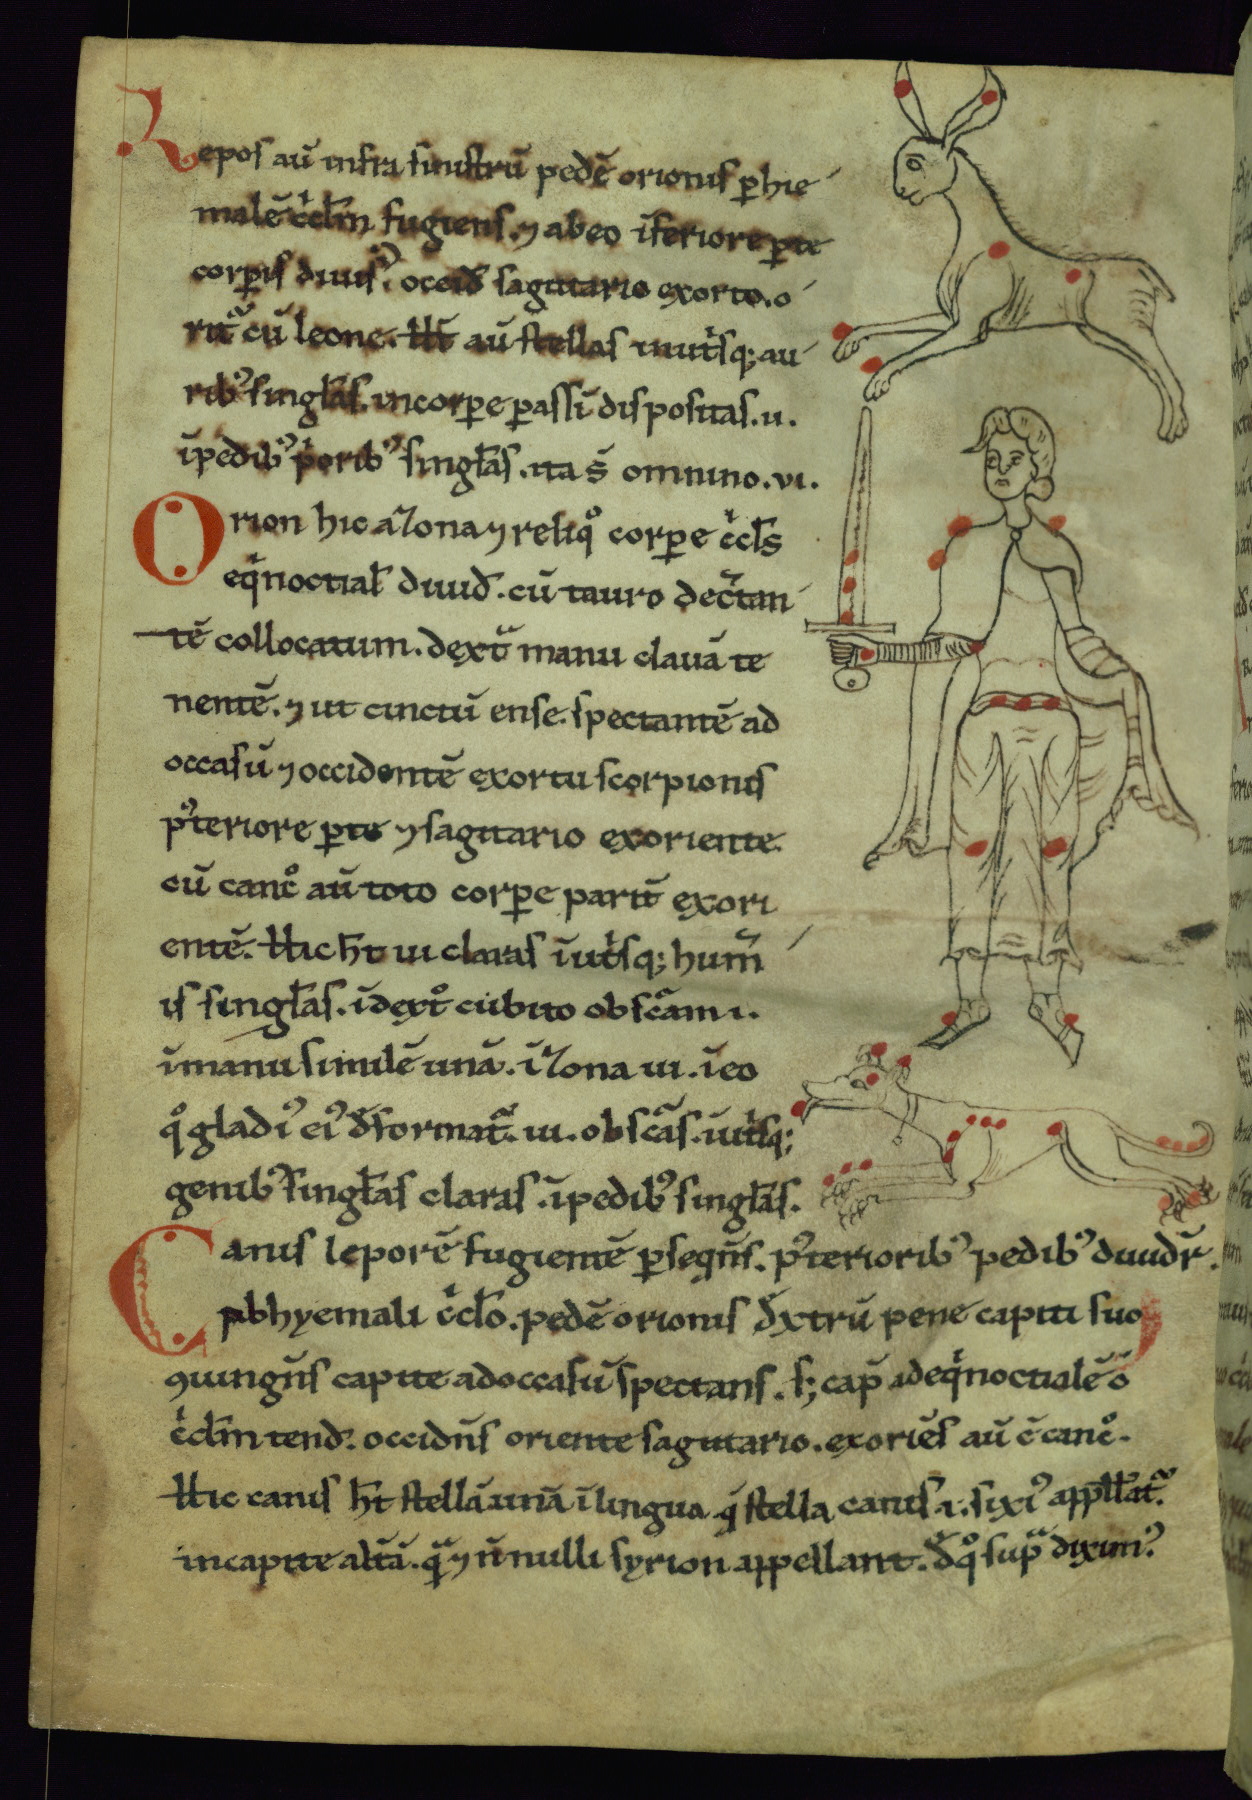 Repos aū infra sinistrū pedē orionis ꝑ hie
malē ċclm̄ fugiens. ⁊ ab eo īferiore ꝑte
corꝑis diuis᷒. occid̄ sagittario exorto. o
rit᷑ cū leone. ht̄ aū stellas in utisq; au
rib᷒ singłas. in corꝑe passī dispositas. ii.
ī pedib᷒ p̍orib᷒ singłas. ita s̄ omnino. vi.
Orion hic a zona ⁊ reliqͦ corꝑe ċcls
eq̍noctial̄ diuid̄. cū tauro dec̄tan
tē collocatum. dext᷑ manu clauā te
nentē. ⁊ ut cinctū ense. spectantē ad
occasū ⁊ occidentē exortu scorpionis
p᷒teriore ꝑte ⁊ sagittario exoriente.
cū canc̊ aū toto corꝑe parit̄ exori
entē. hic ht̄ iii claras ī utisq; hum̄
is singłas. ī dext̊ cubito obsc̄am i.
ī manu similē unā. ī zona iii. ī eo
qͦ gladi᷒ ei᷒ d̄format᷑. iii. obsc̄as. ī utisq;
genib᷒ singłas claras. ī pedib᷒ singłas.
Canis leporē fugientē ꝑseqn̄s. p᷒teriorib᷒ pedib᷒ diuidr̄.
ab hyemali ċclo. pedē orionis d̄xtrū pene capiti suo
ꝯiungn̄s capite ad occasū spectans. s; cap̄ ad eq̍noctialē
ċclm̄ tend̄. occidn̄s oriente sagittario. exoriēs aū c̄ canc̊.
hic canis ht̄ stellā unā ī lingua q̄ stella canis .i. sixi᷒ appllat᷑.
in capite altā. q̄ ⁊ n̄nulli syrion appellant. d̄ qͦ sup᷑ dixim᷒.